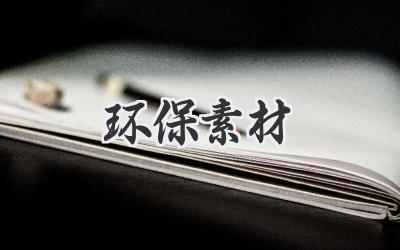 环保素材